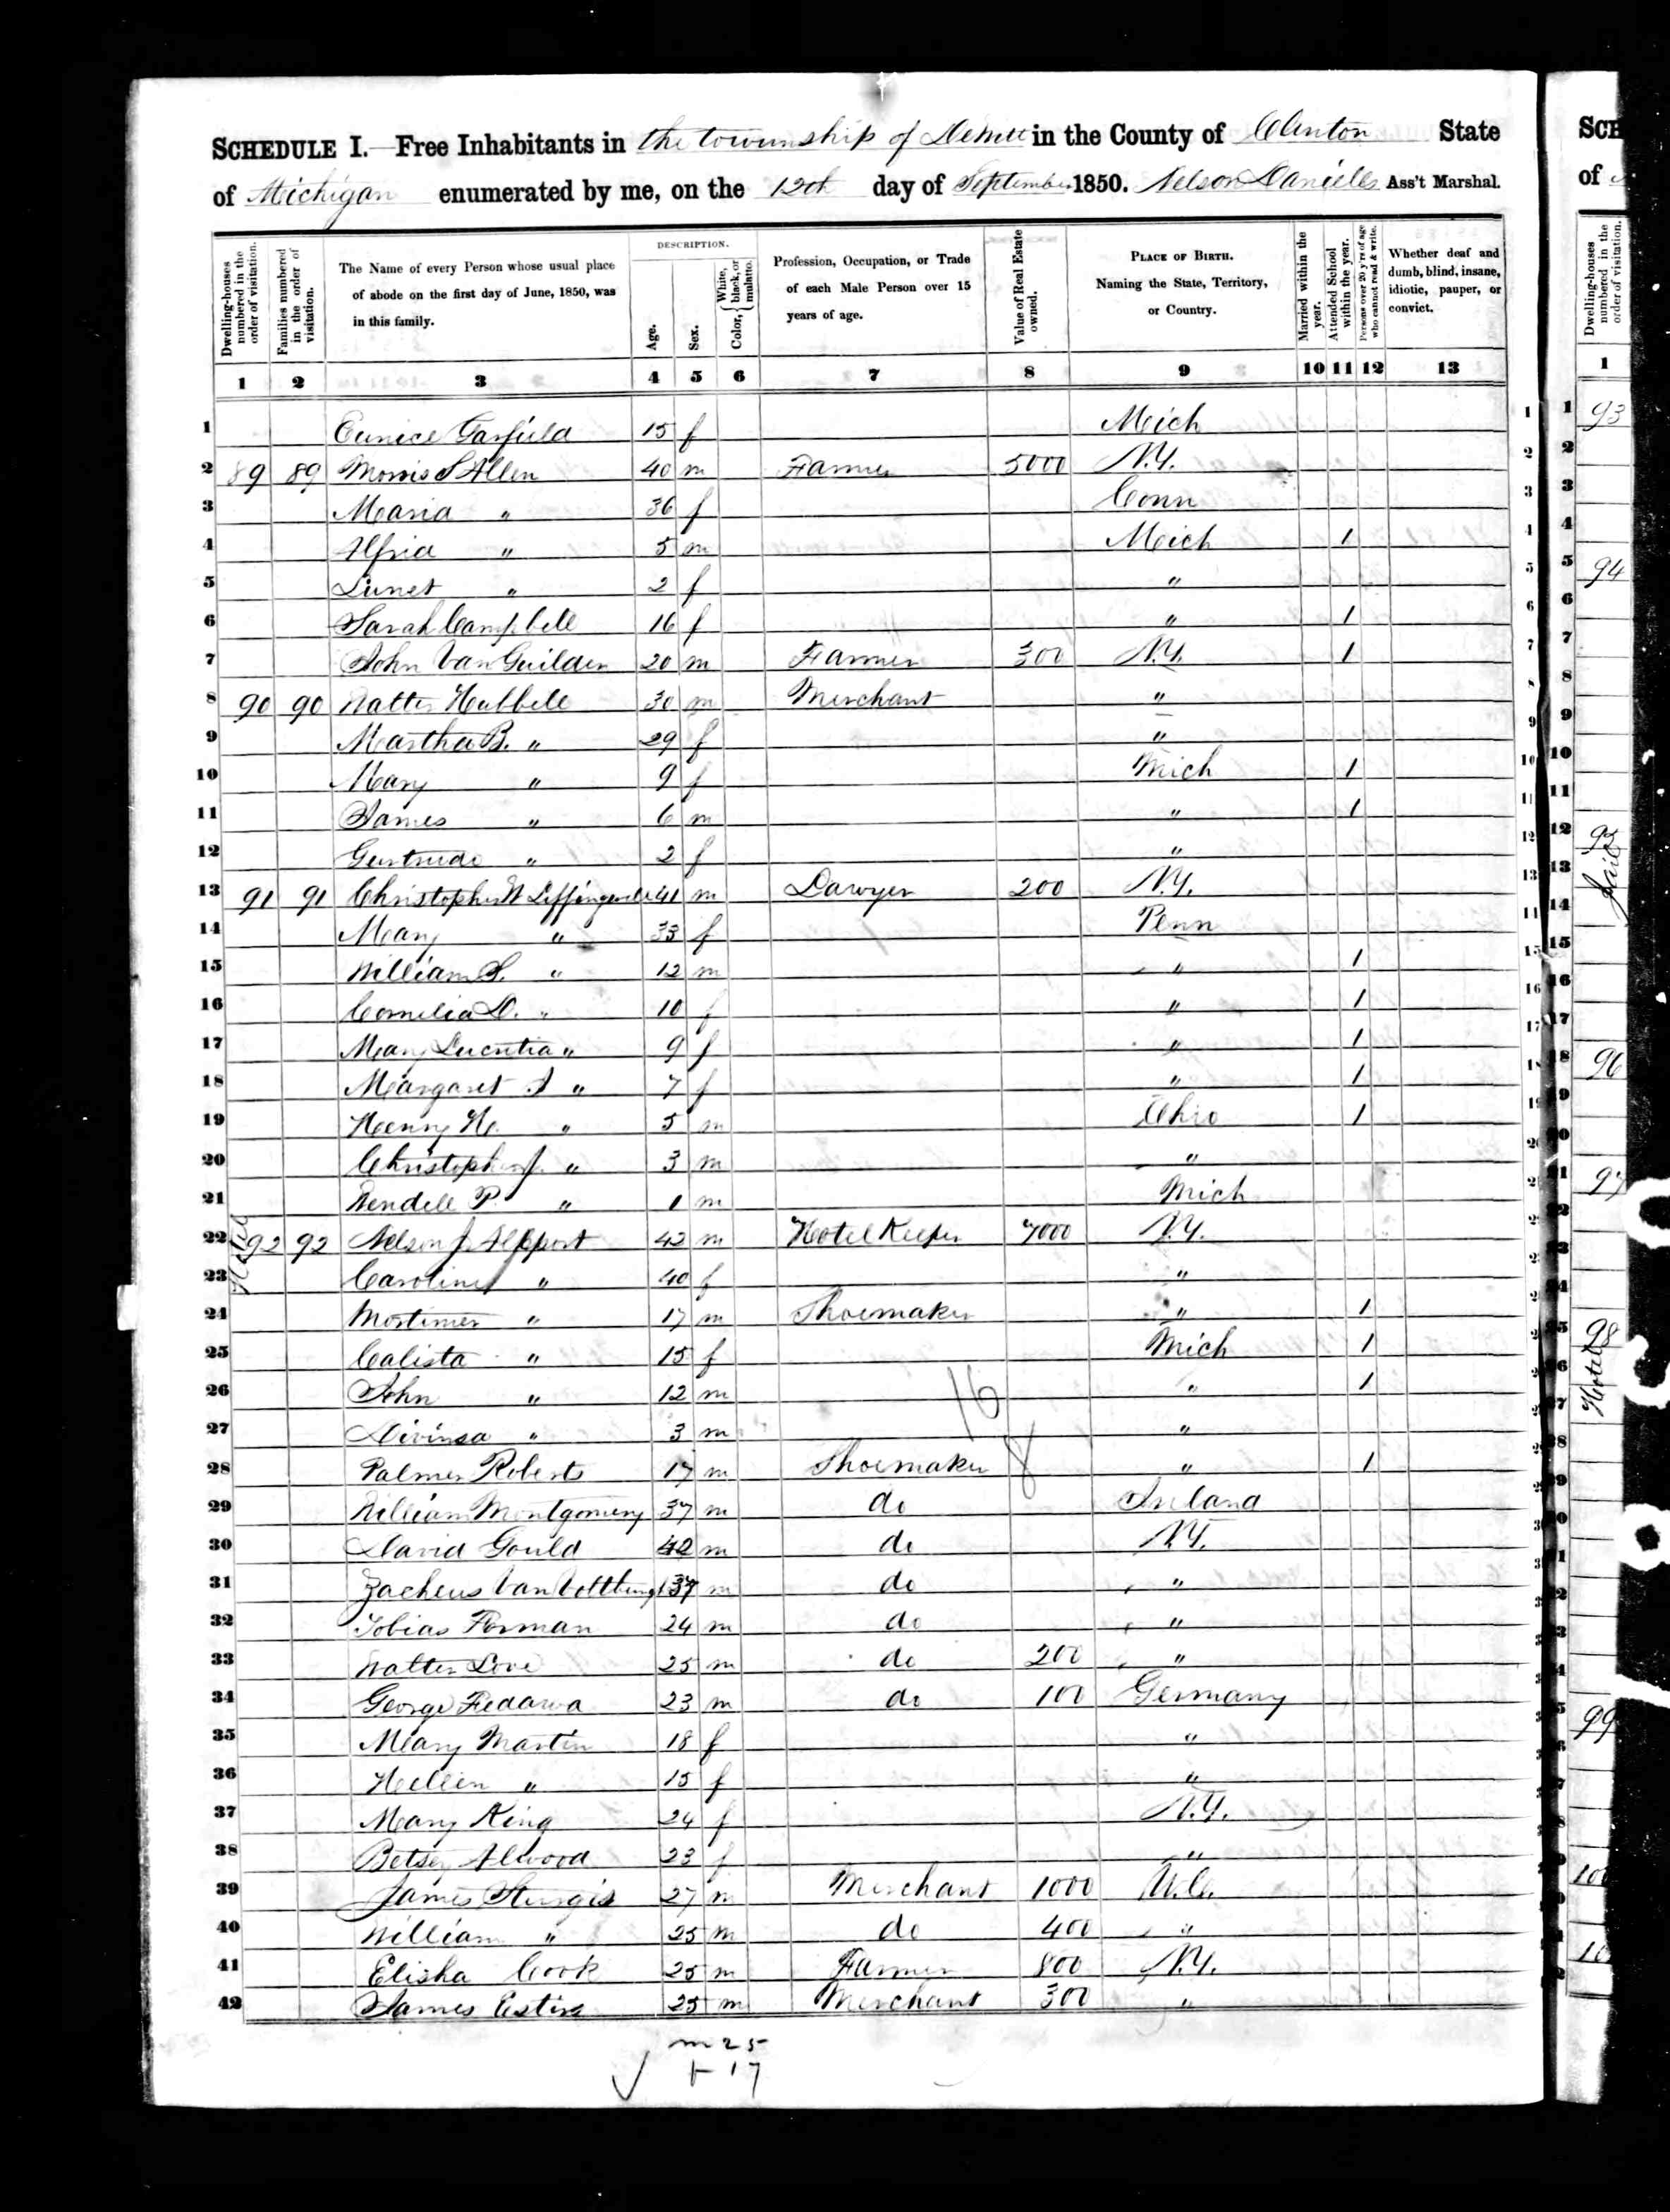 SCHEDULE I.—Free Inhabitants in the township of Dewitt in the County of Clinton State
of Michigan enumerated by me, on the 12th day of September 1850. Nelson Daniells Ass't Marshal.
Dwelling-houses numbered in the order of visitation.
Families numbered in the order of visitation.
The Name of every Person whose usual place of abode on the first day of June, 1850, was in this family.
DESCRIPTION.
Age.
Sex.
Color, { White, black, or mulatto.
Profession, Occupation, or Trade of each Male Person over 15 years of age.
Value of Real Estate owned.
PLACE OF BIRTH. Naming the State, Territory, or Country.
Married within the year.
Attended School within the year.
Persons over 20 y'rs of age who cannot read & write.
Whether deaf and dumb, blind, insane, idiotic, pauper, or convict.
1 2 3 4 5 6 7 8 9 10 11 12 13
1 Eunice Garfield 15 f Mich 1
2 89 89 Morris S Allen 40 m Farmer 5000 N.Y. 2
3 Maria " 36 f Conn 3
4 " 5 m Mich 1 4
5 " 2 f " 5
6 Sarah Campbell 16 f " 1 6
7 John Van Guilder 20 m Farmer 300 N.Y. 1 7
8 90 90 Walter Hubbell 30 m Merchant " 8
9 Martha B. " 29 f " 9
10 Mary " 9 f Mich 1 10
11 James " 6 m " 1 11
12 Gertrude " 2 f " 12
13 91 91 Christopher W Leffingwell 41 m Lawyer 200 N.Y. 13
14 Mary " 33 f Penn
15 William S. " 12 m " 1 15
16 Cornelia D. " 10 f " 1 16
17 Mary Lucretia " 9 f " 1 17
18 Margaret A " 7 f " 1 18
19 Henry H. " 5 m Ohio 1 19
20 Christopher J. " 3 m "
21 Wendell P. " 1 m Mich
22 Hotel 92 92 Nelson J. Allport 42 m Hotel Keeper 7000 N.Y.
23 Caroline " 40 f "
24 Mortimer " 17 m Shoemaker " 1
25 Calista " 15 f Mich 1
26 John " 12 m " 1
16
27 " 3 m "
28 Palmer Roberts 17 m Shoemaker 8 " 1
29 William Montgomery 37 m do Ireland
30 David Gould 42 m do N.Y.
31 Zacheus 37 m do "
32 Tobias Forman 24 m do "
33 Walter Love 25 m do 200 "
34 George Fedawa 23 m do 100 Germany
35 Mary Martin 18 f "
36 Hellen " 15 f "
37 Mary King 24 f N.Y.
38 Betsey Alwood 23 f "
39 James Sturgis 27 m Merchant 1000 U.C.
40 William " 25 m do 400 "
41 Elisha Cook 25 m Farmer 800 N.Y.
42 James Estes 25 m Merchant 300 "
m 25
f 17
SCH
of
Dwelling-houses numbered in the order of visitation.
1
93
94
95
96
97
98
Hotel
99